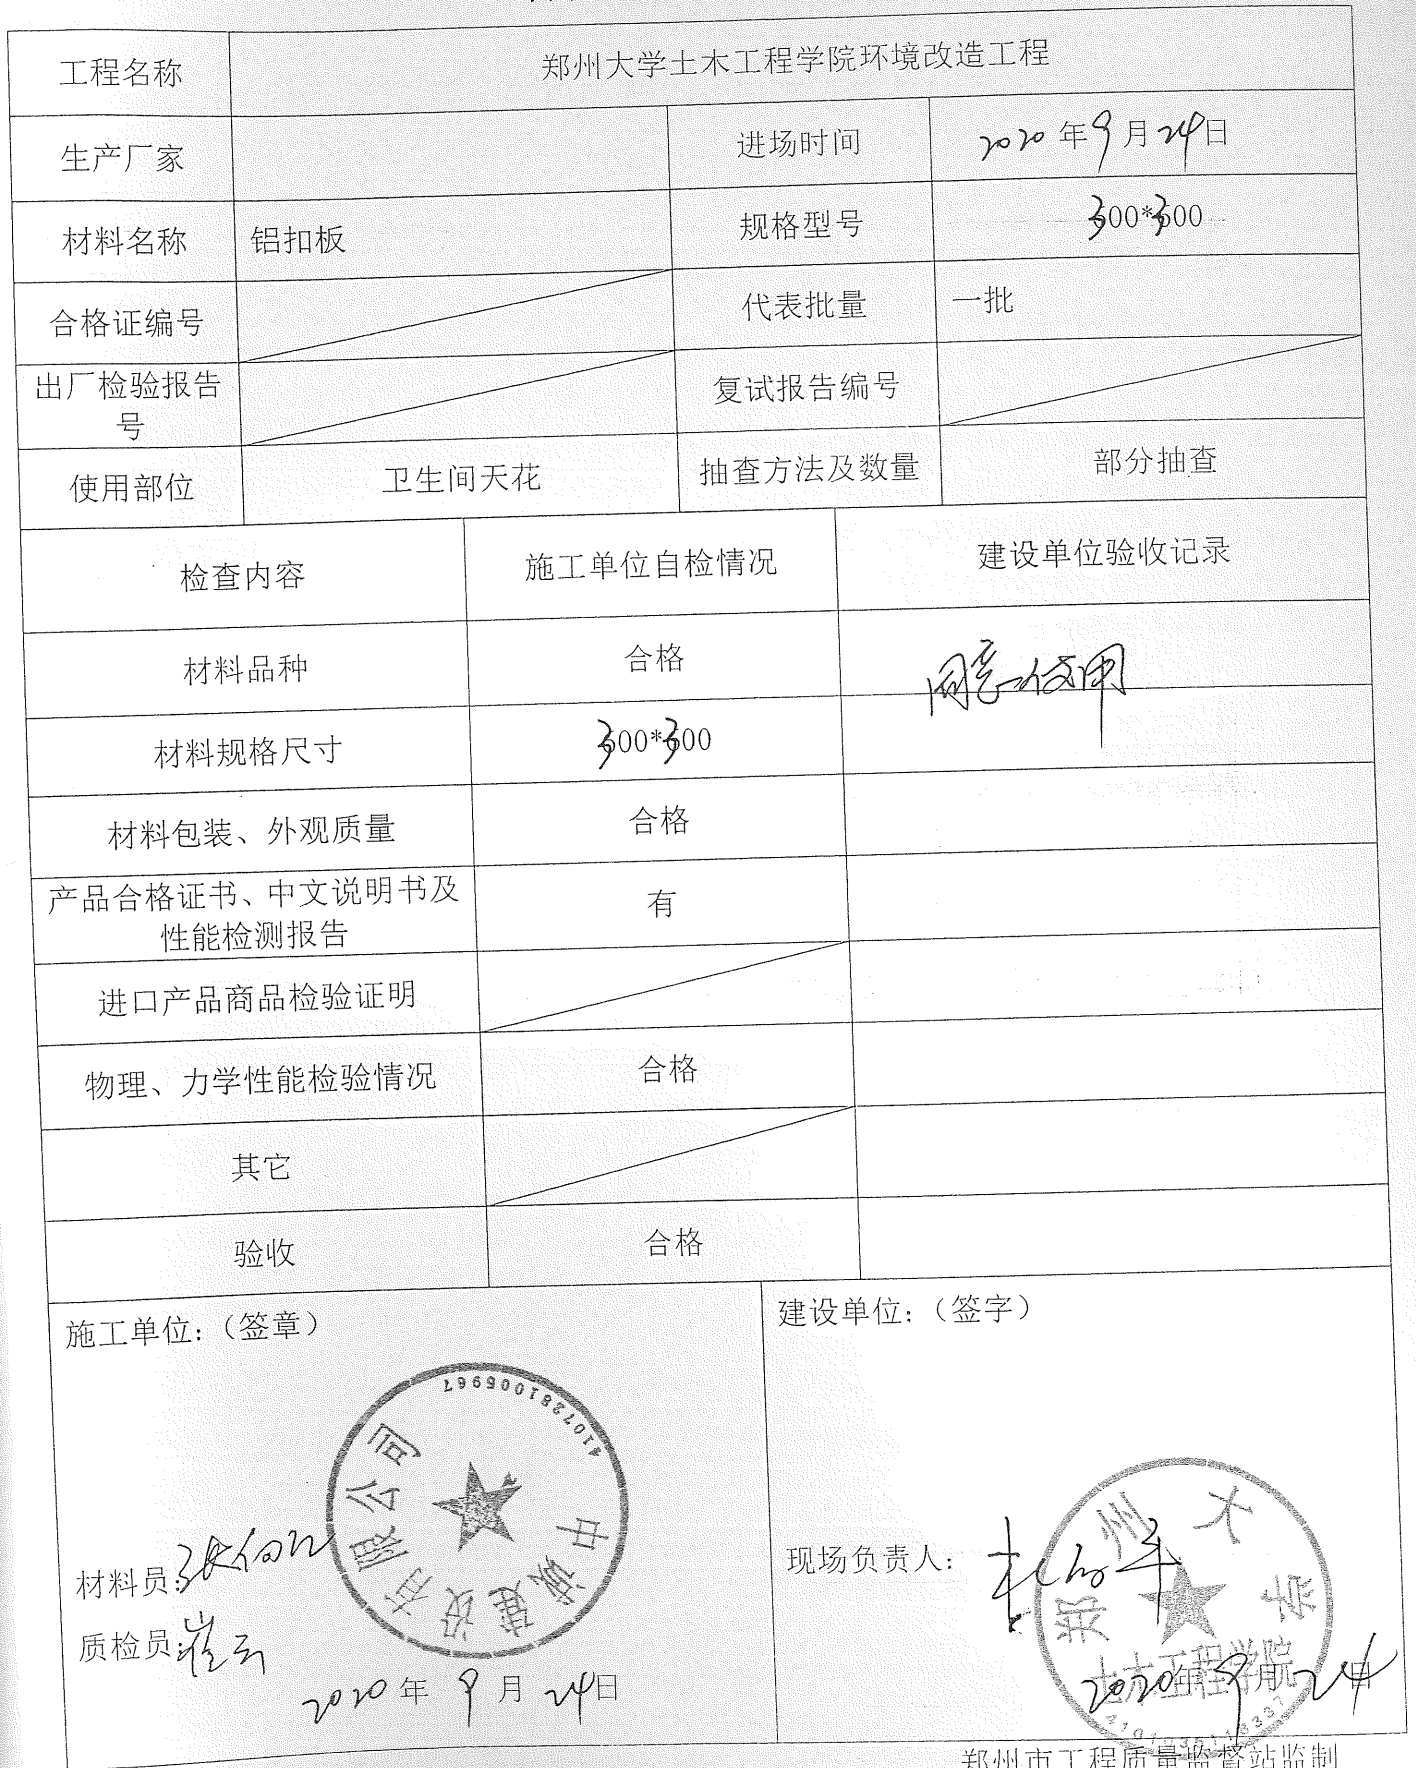 工程名称 郑州大学土木工程学院环境改造工程
生产厂家 进场时间 2020年9月24日
材料名称 铝扣板 规格型号 300*300
合格证编号 代表批量 一批
出厂检验报告
号 复试报告编号
使用部位 卫生间天花 抽查方法及数量 部分抽查
检查内容 施工单位自检情况 建设单位验收记录
材料品种 合格 同意使用
材料规格尺寸 300*300
材料包装、外观质量 合格
产品合格证书、中文说明书及
性能检测报告 有
进口产品商品检验证明
物理、力学性能检验情况 合格
其它
验收 合格
施工单位:（签章） 建设单位:（签字）
中诚建设有限公司
4107281005967
材料员:
质检员: 崔云
2020年9月24日
现场负责人:
郑州大学
土木工程学院
2020年9月24日
郑州市工程质量监督站监制